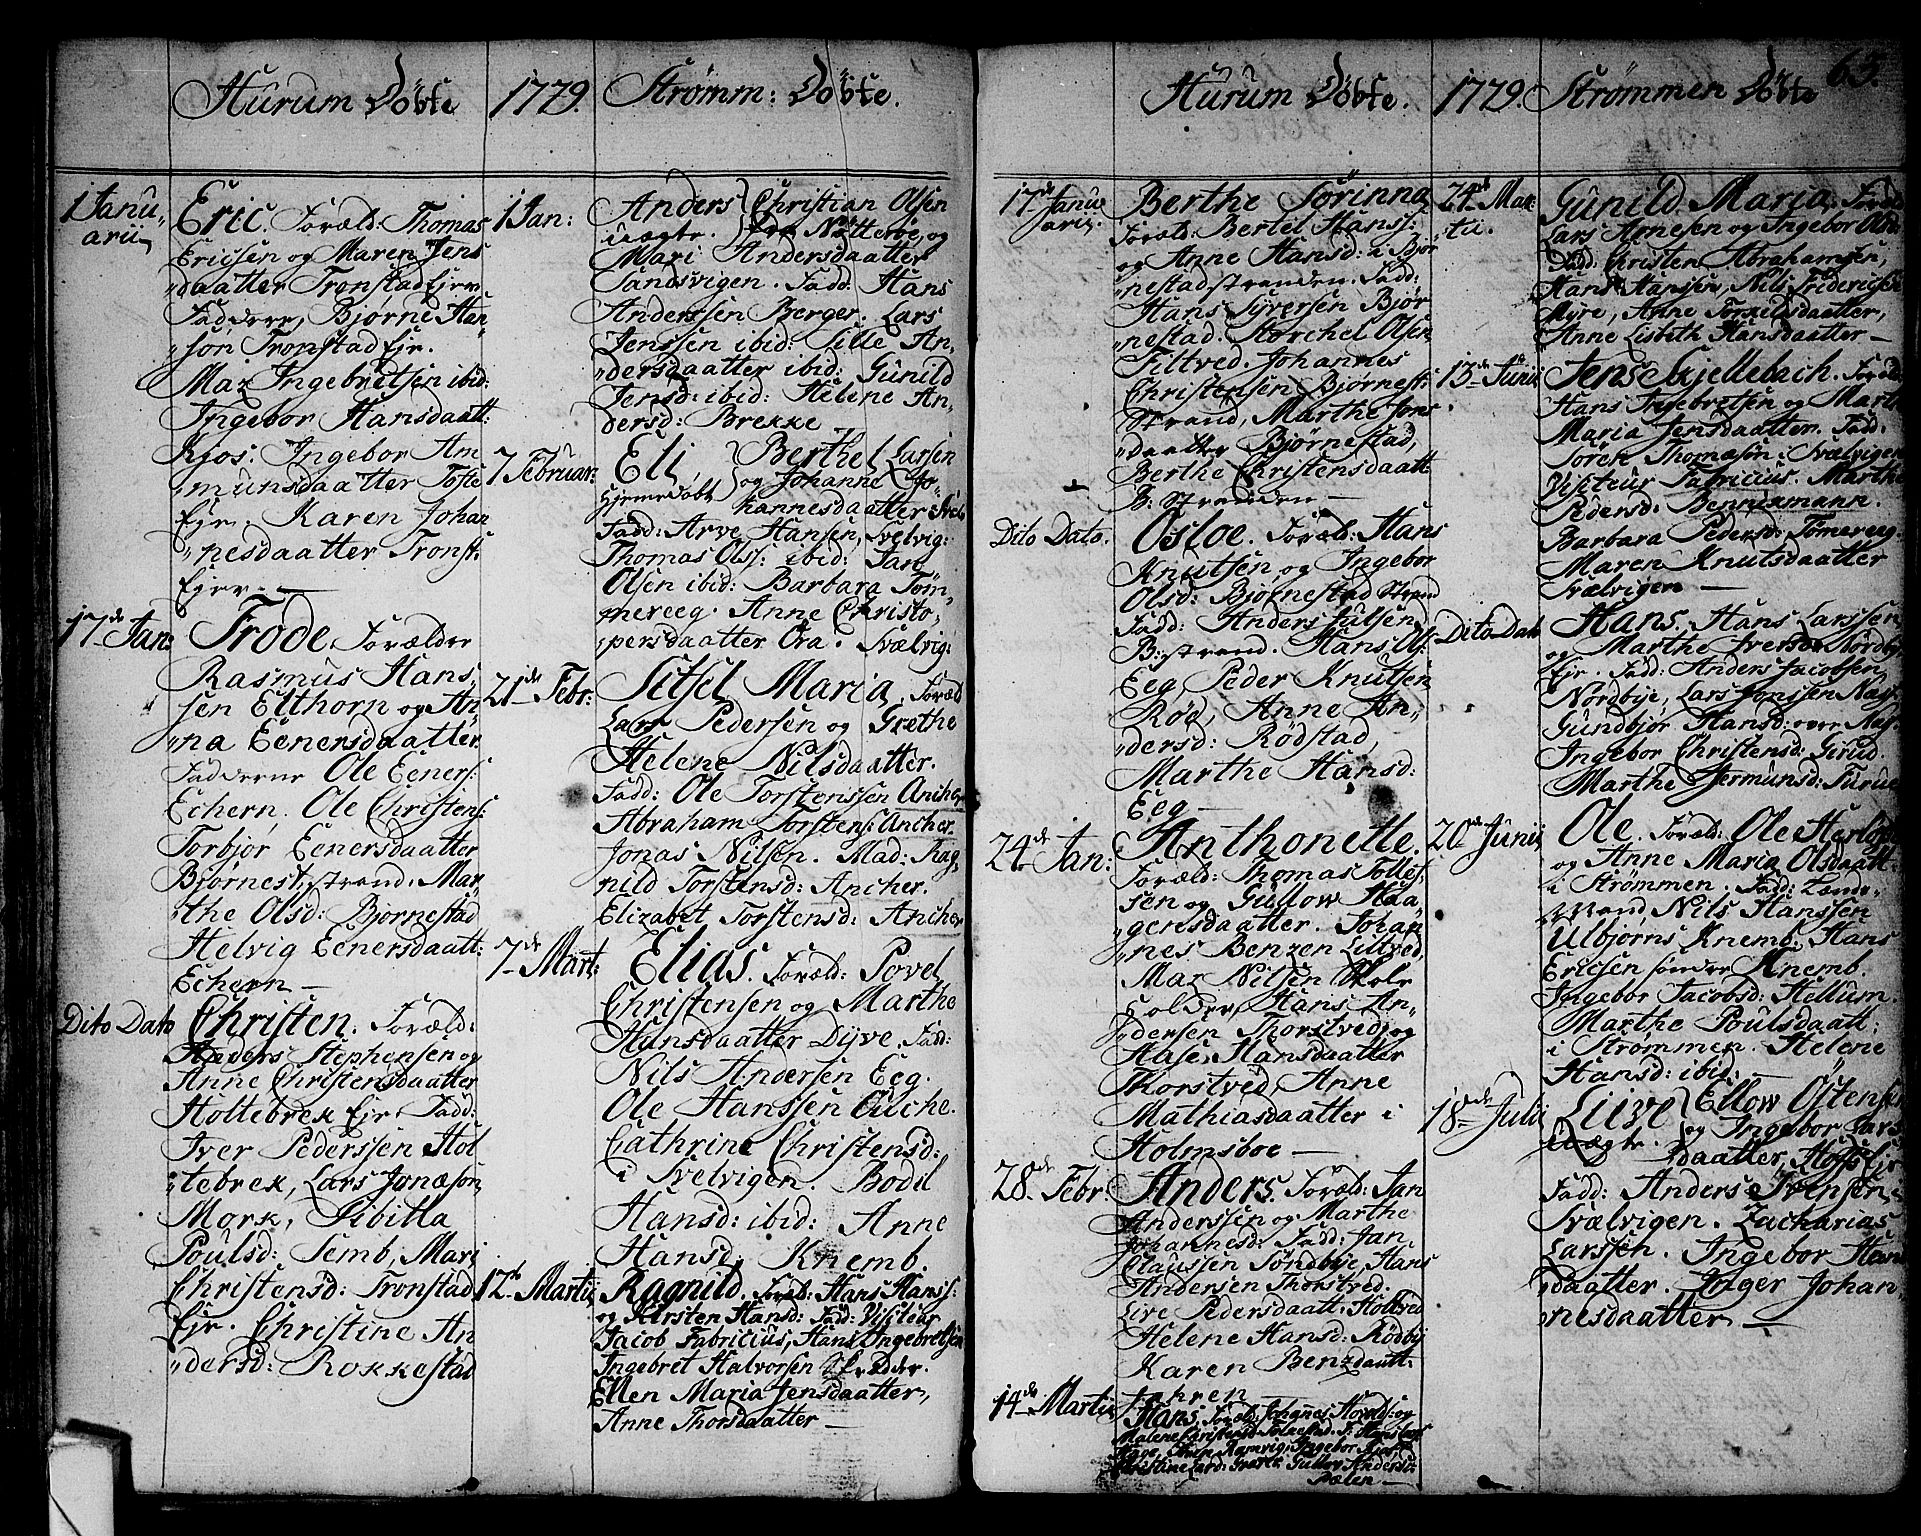 Hurum Döbte
1779.
Strømm: Döbte.
1 Janu„
arii
Eric. Foræld: Thomas
Ericsen og Maren Jens
daatter Tronstad Ejer
Faddere, Bjørne Han„
„søn Tronstad Ejr.
Max Ingebretsen ibid:
Ingebor Hansdaatt:
Kjos: Ingebor Am
munsdaatter Tofte
Ejr. Karen Johan
„nesdaatter Tronst:
Ejer —
17de Jan:
Frode, Forælder
Rasmus Hans„
sen Elthorn og An
„na Eenersdaatter
Fadderne Ole Eeners:
Echern. Ole Christens:
Torbjør Eenersdaatter
Bjornest: strand: Mar„
„the Olsd: Bjornestad
Helvig Eenersdaatt:
Echern —
Dito Dato
Christen. Foræld:
Anders Stephensen og
Anne Christensdaatter
Holtebrek Ejr. Fadd:
Iver Pederssen Hol
„tebrek, Lars Jonæson
Mork, Sibilla
Poulsd: Semb, Mari
Christensd: Tronstad
Ejr. Christine An
„dersd: Rokkestad
1 Jan:
Anders Christian Olsen
uægte. fra Nøtterøe, og
Mari Andersdaatter
Sandsvigen. Fadd: Hans
Anderssen Berger. Lars
Jenssen ibid: Sille An„
„dersdaatter ibid: Gunild
Jensd: ibid: Helene An„
dersd: Brekke
7 Februar:
Eli, Berthel Larssen
Hjemmedøbt og Johanne Jo„
hannesdaatter
Fadd: Arve Hansen, Svelvig:
Thomas Olss: ibid: Jan
Olsen ibid: Barbara Töm„
„mereeg. Anne Christo„
„persdaatter Ora. Svælvig:
21de Febr:
Sitsel Maria. Foræld
Lars Pedersen og Grethe
Helene Nilsdaatter.
Fadd: Ole Torstenssen Ancher
Abraham Torstens: Ancher.
Jonas Nilsen. Mad: Rag„
nild Torstensd: Ancher.
Elizabet Torstensd: Ancher
7de Mart:
Elias. Foræld: Povel
Christensen og Marthe
Hansdaatter Dyve Fadd:
Nils Andersen Eeg.
Ole Hanssen
Cathrine Christensd:
i Svelvigen. Bodil
Hansd: ibid: Anne
Hansd, Knemb.
12te Martii
Ragnild. Foræld: Hans Hans:
og Kirsten Hansd: Fadd: Visiteur
Jacob Fabricius, Hans Ingebretsen
Ingebret Halvorsen
Ellen Maria Jensdaatter,
Anne Thorsdaatter —
65.
Hurum Döbte.
1779.
Strømmen Döbte
17de Janu„
„arii.
Berthe Sörinna
Foræld: Bertel Hanss:
og Anne Hansd: i Björ
„nestadstranden. Fadd:
Hans Syversen Bjør„
„nestad. Storchel Olsen
Filtved. Johannes
Christensen Bjørnest:
Strand, Marthe Jons
„daatter Bjørnestad,
Berthe Christensdaatt:
B: Stranden —
Dito Dato.
Osloe. Foræld: Hans
Knutsen og Ingebor
Olsd: Bjørnestad Strand
Fadd: Anders Julsen
B: strand. Hans Ols:
Eeg, Peder Knutsen
Röd, Anne An„
„dersd: Rödstad,
Marthe Hansd:
Eeg —
24de Jan:
Anthonette.
Foræld: Thomas Tolles„
sen og Gullow Haa„
„gensdaatter. Johan„
„nes Benzen Filtved,
Max Nilsen Skole
holder, Hans An„
„dersen Thorstved, og
Hase Hansdaatter
Thorstved, Anne
Mathiasdaatter i
Holmsboe —
28de Febr:
Anders. Foræld: Jan
Anderssen og Marthe
Johannesd: Fadd: Jan
Claussen Søndbye, Hans
Andersen Thorstved.
Live Pedersdaatt: Holtved
Helene Hansd: Rödby
Karen Benzdaatt:
14de Martii
Hans. Foræld: Johannes
24de Mar„
„tii.
Gunild Maria, Foræld
Lars Arnesen og Ingebor Olsd:
Fadd: Christen Abrahamsen,
Hans Hansen, Nils Fridericsen
Myre, Anne Torkilsdaatter,
Anne Lisbeth Hansdaatter —
13de Junii
Jens Kjellebach. Foræld
Hans Ingebretsen og Marthe
Maria Jensdaatter. Fadd:
Søren Thomæsøn: Svælvigen
Visiteur Fabricius. Marthe
Pedersd: Bennekmann.
Barbara Pedersd: Tömereeg.
Maren Knutsdaatter
Svælvigen —
Dito Dato
Hans. Hans Larssen
og Marthe Iversd: Nordby
Ejr. Fadd: Anders Jacobsen
Nordbye, Lars Jonssen Næs.
Gundbjør Hansd: over Næs.
Ingebor Christensd: Grud.
Marthe Germunsd:
20de Junii
Ole. Foræld: Ole
og Anne Maria Olsdaatt:
i Strømmen. Fadd: Lænds„
„Mand, Nils Hanssen
Ulbjørns Knemb. Hans
Ericsen sønder Knemb.
Ingebor Jacobsd: Hellum.
Marthe Poulsdaatt:
i Strømmen. Helene
Hansd: ibid: —
18de Julii
Liive Ellow Östensen
uægte. og Ingebor Lars
daatter,
Fadd: Anders Svensen
Svælvigen. Zacharias
Larssen. Ingebor Hans
„daatter. Inger Johan„
nesdaatter —